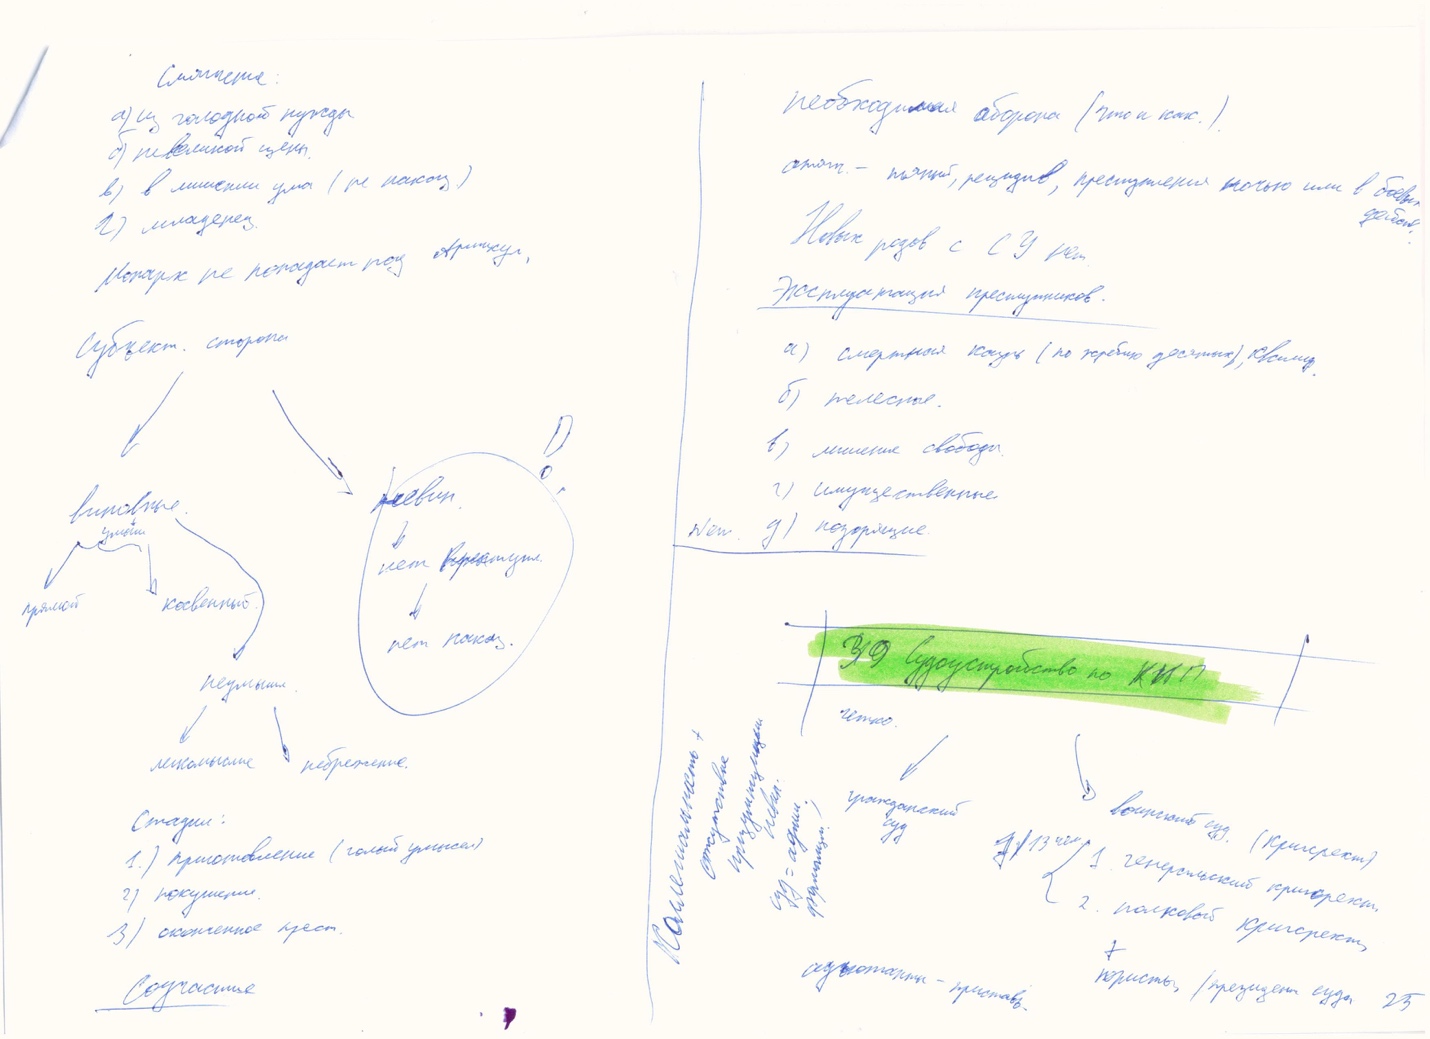 Смягчение:
а) из голодной нужды
б) невеликой цены.
в) в лишении ума (не наказ)
г) младенец.
Монарх не попадает под Артикул.
Субъект. сторона
виновные.
умысел
прямой
косвенный.
неумышл.
легкомыслие
небрежение.
невин.
нет преступл.
нет наказ.
Стадии:
1.) приготовление (голый умысел)
2) покушение.
3) оконченное прест.
Соучастие
необходимая оборона (что и как.)
отягч. - пьяный, рецидив, преступления ночью или в боевых
действ.
Новых родов с СУ нет.
Эксплуатация преступников.
а) смертная казнь (по жребию десятый), квалиф.
б) телесные.
в) лишение свободы.
г) имущественные
New. д) позорящие.
39 Судоустройство по КИП
четко.
гражданский
суд
воинский суд. (Кригсрехт)
13 чел
1. генеральский кригсрехт,
2. полковой кригсрехт,
+
юристы, /президент суда 25
аудиторы - приставы.
Коллегиальность +
отсутствие
презумпции
невин.
суд = админ.